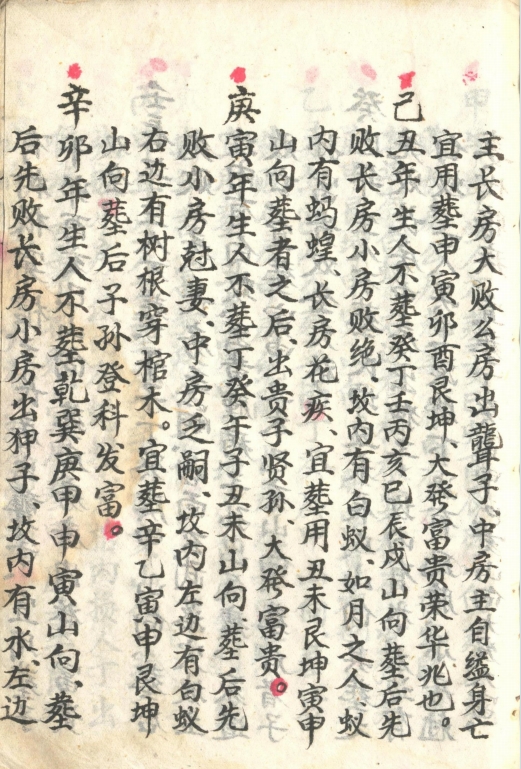 主长房大败公房出聋子、中房主自缢身亡
宜用葬申寅卯酉艮坤、大発富贵荣华兆也。
己丑年生人不葬癸丁壬丙亥巳辰戌山向葬后先
败长房小房败绝、坟内有白蚁、如月之人蚁
内有蚂蝗、长房花疾、宜葬用丑未艮坤寅申
山向葬者之后、出贵子贤孙、大発富贵。
庚寅年生人不葬丁癸午子丑未山向、葬后先
败小房尅妻、中房乏嗣、坟内左边有白蚁
右边有树根穿棺木。宜葬辛乙寅申艮坤
山向葬后子孙登科发富。
辛卯年生人不葬乾巽庚甲申寅山向、葬
后先败长房小房出狎子、坟内有水、左边